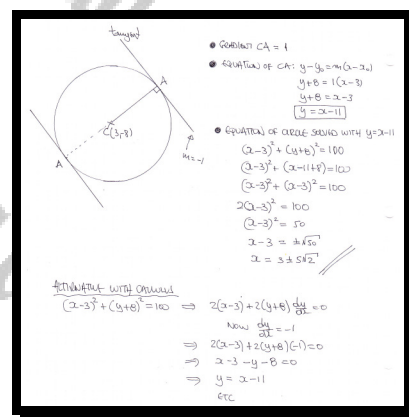 tangent
A
C(3,-8)
A
m=-1
• GRADIENT CA = 1
• EQUATION OF CA: y-y₀=m(x-x₀)
y+8 = 1(x-3)
y+8 = x-3
y = x-11
• EQUATION OF CIRCLE SOLVED WITH y=x-11
(x-3)² + (y+8)² = 100
(x-3)² + (x-11+8)² = 100
(x-3)² + (x-3)² = 100
2(x-3)² = 100
(x-3)² = 50
x-3 = ±√50
x = 3 ± 5√2
ALTERNATIVE WITH CALCULUS
(x-3)² + (y+8)² = 100 ⇒ 2(x-3) + 2(y+8) dy/dx = 0
NOW dy/dx = -1
⇒ 2(x-3) + 2(y+8)(-1) = 0
⇒ x-3-y-8 = 0
⇒ y = x-11
ETC